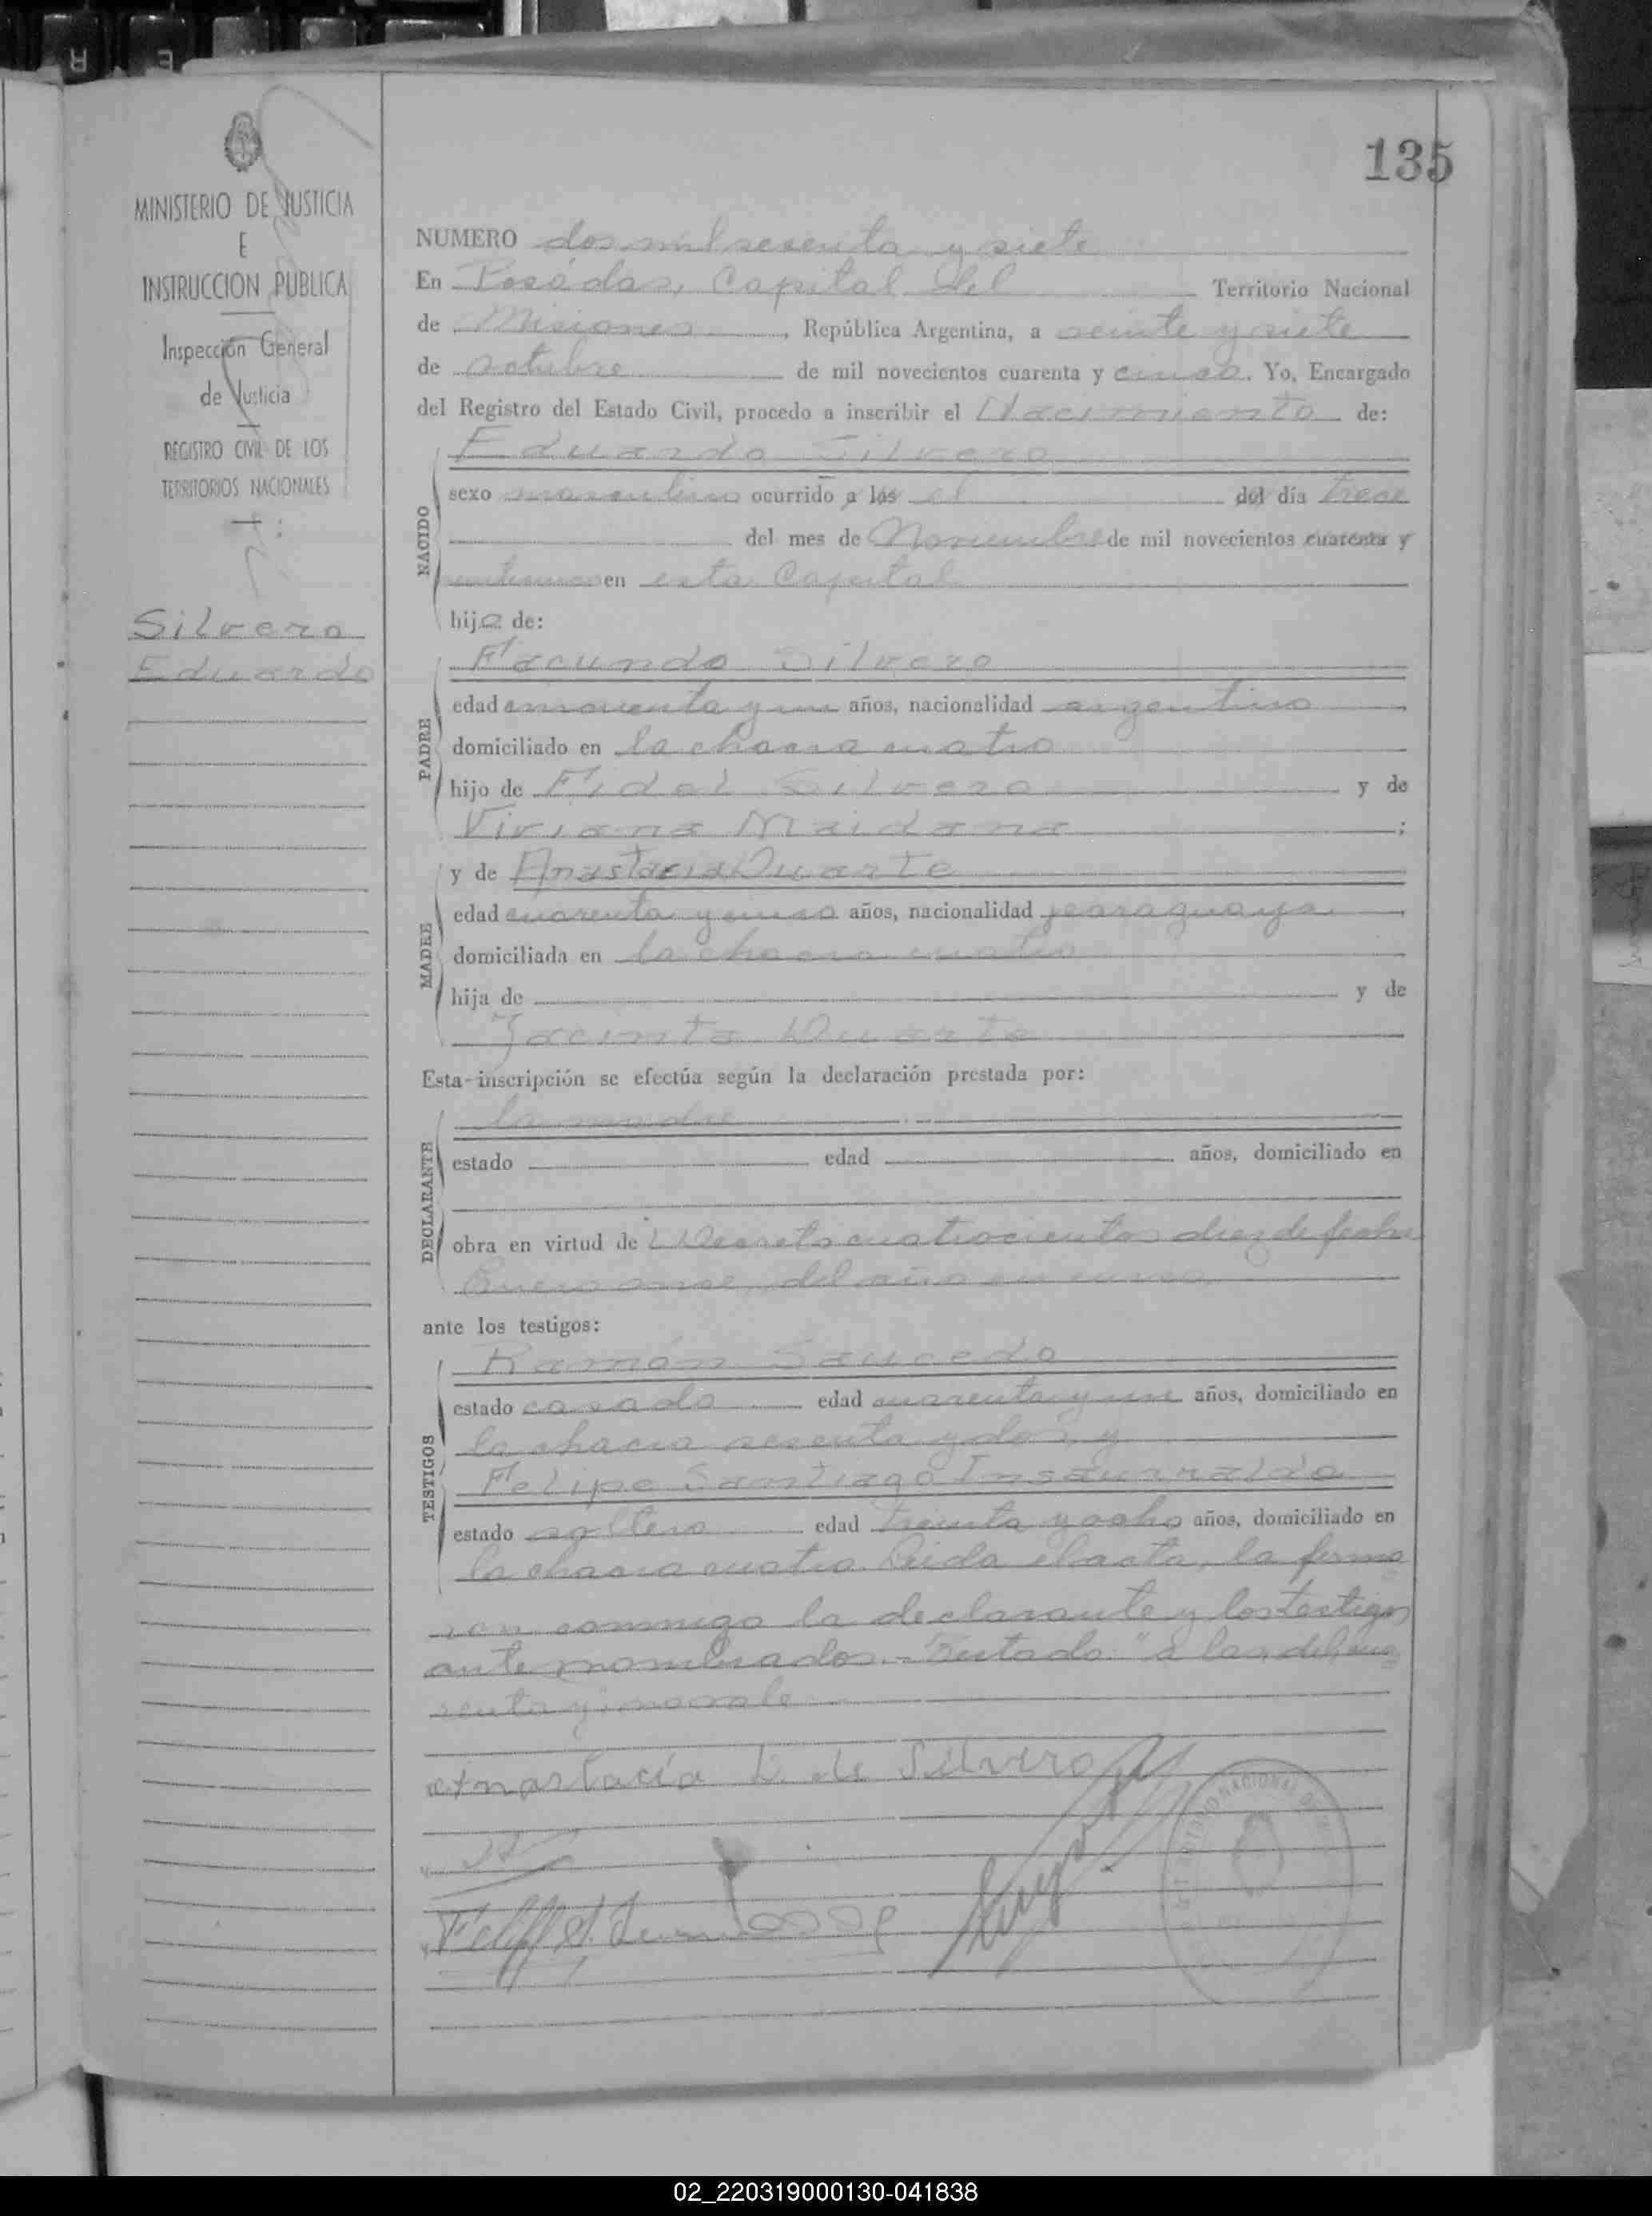 135
MINISTERIO DE JUSTICIA
E
INSTRUCCION PUBLICA
Inspección General
de Justicia
REGISTRO CIVIL DE LOS
TERRITORIOS NACIONALES
Silvero
Eduardo
NUMERO dos mil sesenta y siete
En Posadas, Capital del Territorio Nacional
de Misiones, República Argentina, a veinte y siete
de octubre de mil novecientos cuarenta y cinco. Yo, Encargado
del Registro del Estado Civil, procedo a inscribir el Nacimiento de:
Eduardo Silvero
NACIDO
sexo masculino ocurrido a las el del día trece
del mes de Noviembre de mil novecientos cuarenta y
en esta Capital
hijo de:
Facundo Silvero
PADRE
edad cincuenta y un años, nacionalidad argentino,
domiciliado en la chacra cuatro
hijo de Fidel Silvero y de
Viviana Maidana;
y de Anastacia Duarte
MADRE
edad cuarenta y cinco años, nacionalidad paraguaya,
domiciliada en la chacra cuatro
hija de y de
Jacinta Duarte
Esta inscripción se efectúa según la declaración prestada por:
la madre
DECLARANTE
estado edad años, domiciliado en
obra en virtud de Decreto cuatrocientos diez de fecha
Enero once del año en curso
ante los testigos:
Ramón Saucedo
TESTIGOS
estado casado edad cuarenta y un años, domiciliado en
la chacra sesenta y dos y
Felipe Santiago Insaurralde
estado soltero edad treinta y ocho años, domiciliado en
la chacra cuatro. Leida el acta, la firma
ron conmigo la declarante y los testigos
ante nombrados.- Testado: "a las, del, cua
renta y" no vale
Anastacia D. de Silvero
02_220319000130-041838